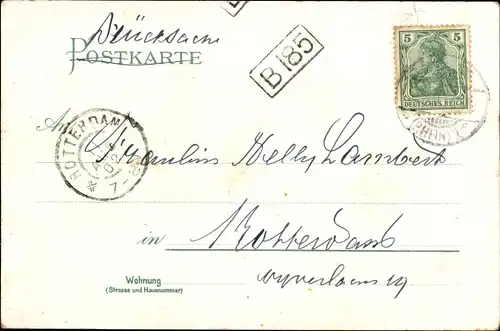 Drucksache
POSTKARTE
B 185
5 5
DEUTSCHES REICH
An
ROTTERDAM
Fraulein Nelly Lambert
in Rotterdam
Wohnung
(Strasse und Hausnummer)